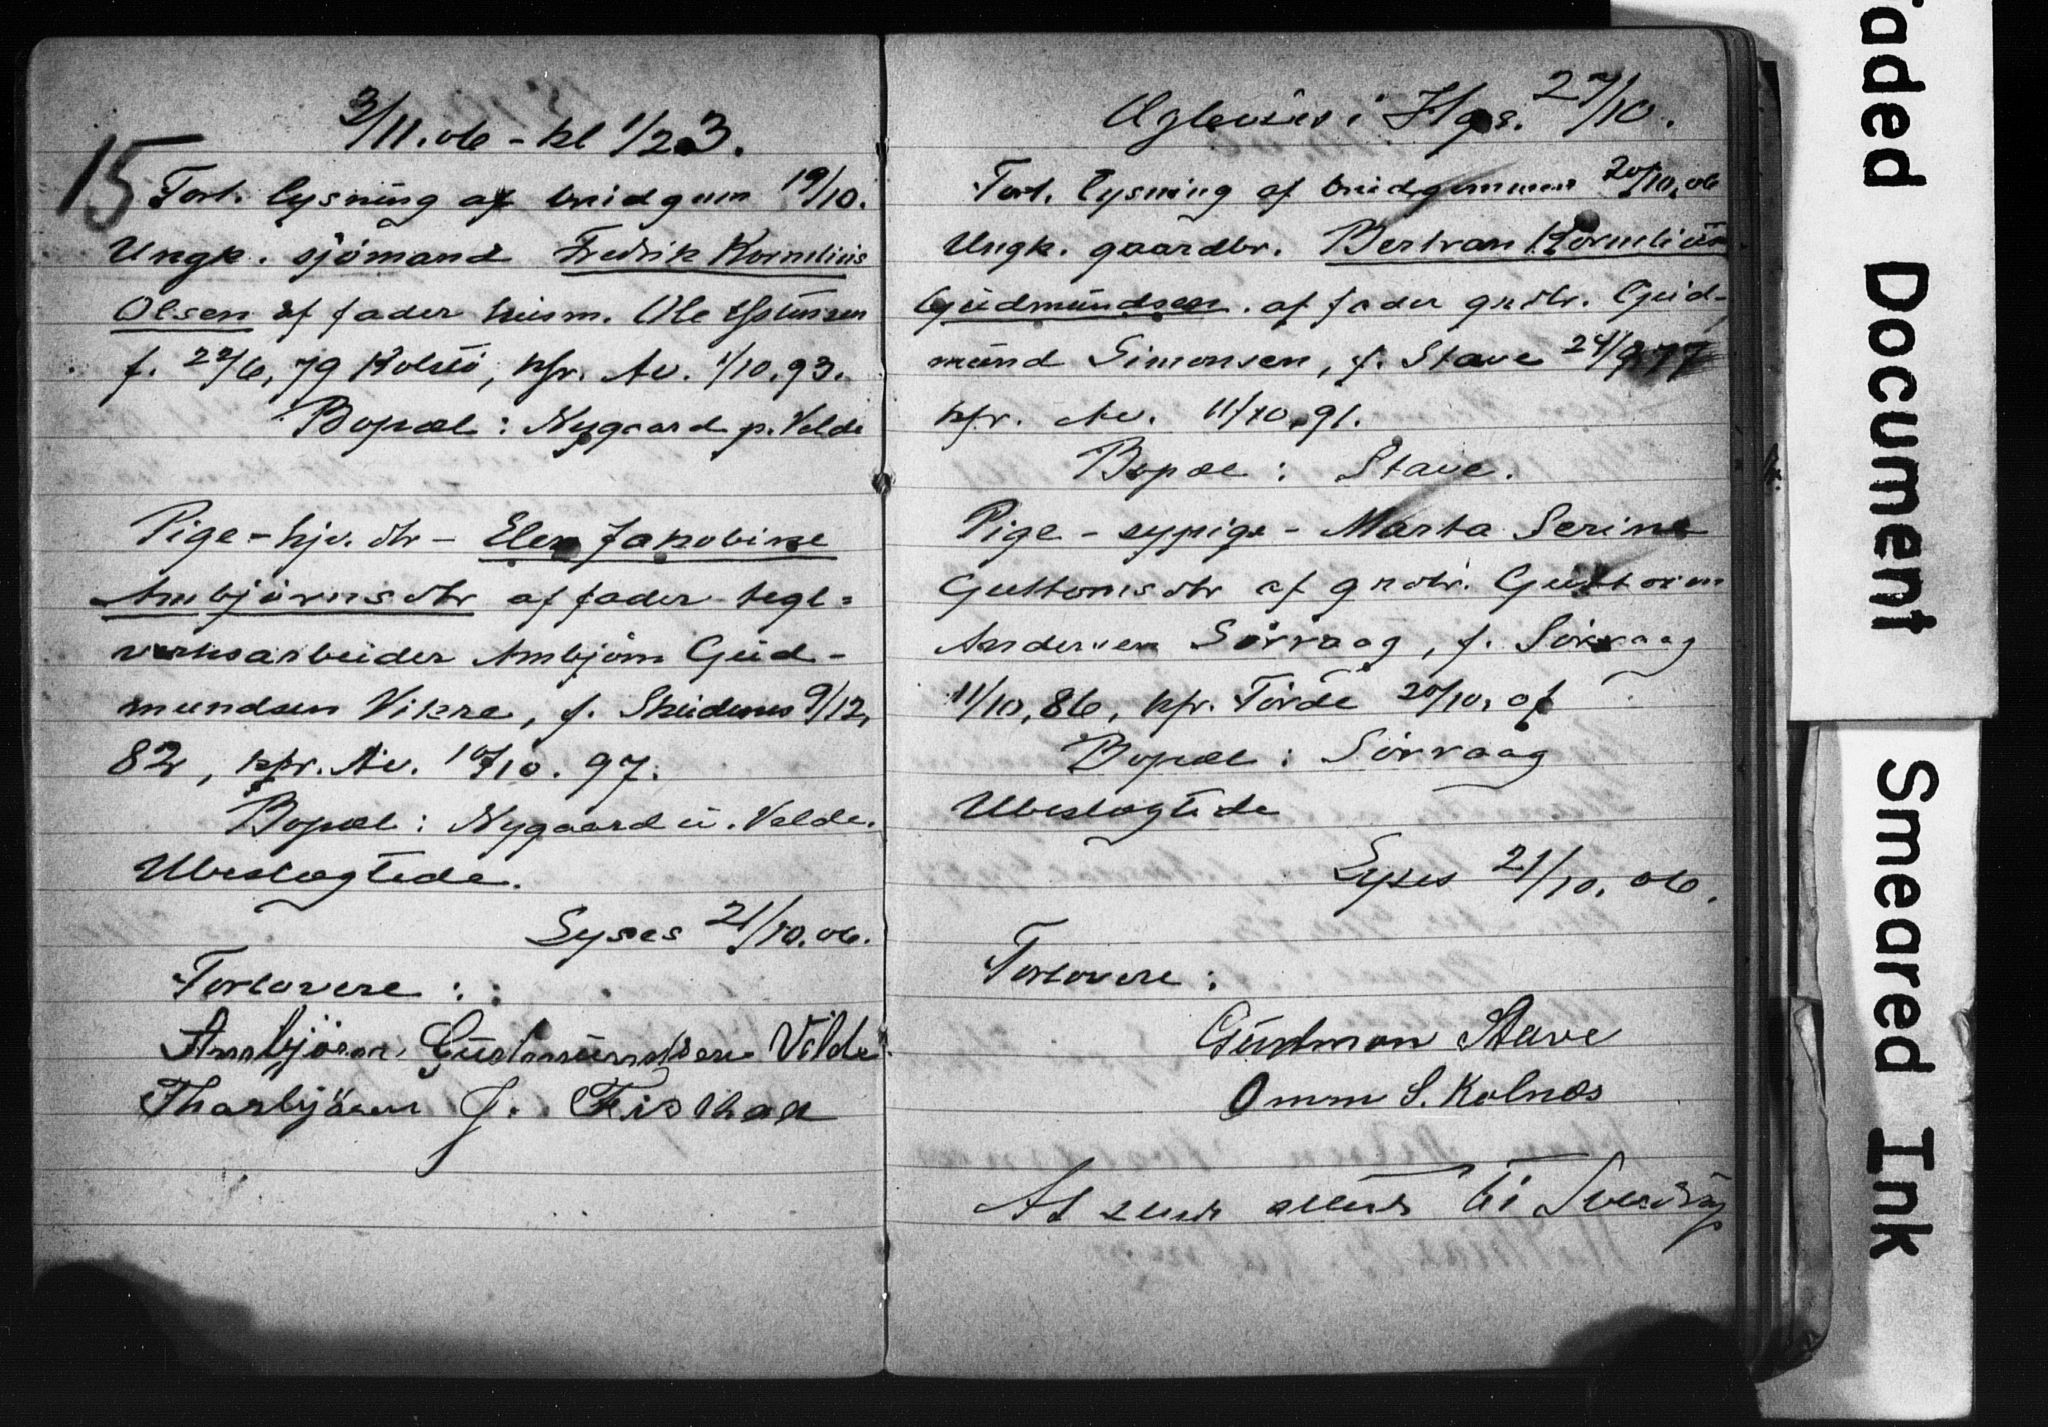 3/11.06 - kl 1/2 3.
15 Forl. lysning af bridgom 19/10.
Ungk. sjömand Fredrik Kornelius
Olsen af fader husm. Ole
f. 22/6, 79 Kolstö, kfr. Av. 1/10.93.
Bopæl: Nygaard p. Velde
Pige - hjv. dtr - Elen Jakobine
Ambjørnsdtr af fader tegl=
verksarbeider Ambjørn Gud-
mundsen Vikre, f. Skudenes 9/12,
82, kfr. Av. 10/10. 97.
Bopæl: Nygaard u. Velde.
Ubeslægtede.
Lyses 21/10.06.
Forlovere:
Ambjörn Gudmundsen Velde
Thorbjörn J. Fiskaa
Aglevises i Hgs. 27/10.
Forl. lysning af bridgommen 20/10.06
Ungk. gaardbr. Bertran Kornelius
Gudmundsen. af fader grdbr. Gud-
mund Simonsen, f. Stave 24/ 77
kfr. Av. 11/10.91.
Bopæl: Stave.
Pige - sypige - Marta Serine
Guttomsdtr af grdbr. Guttorm
Andersen Sörvaag, f. Sörvaag
11/10, 86, kfr. Förde 20/10, 01
Bopæl: Sörvaag
Ubeslægtede
Lyses 21/10.06.
Forlovere:
Gudmon Stave
Omm S. Kolnes
At sende attest til Sverdrup